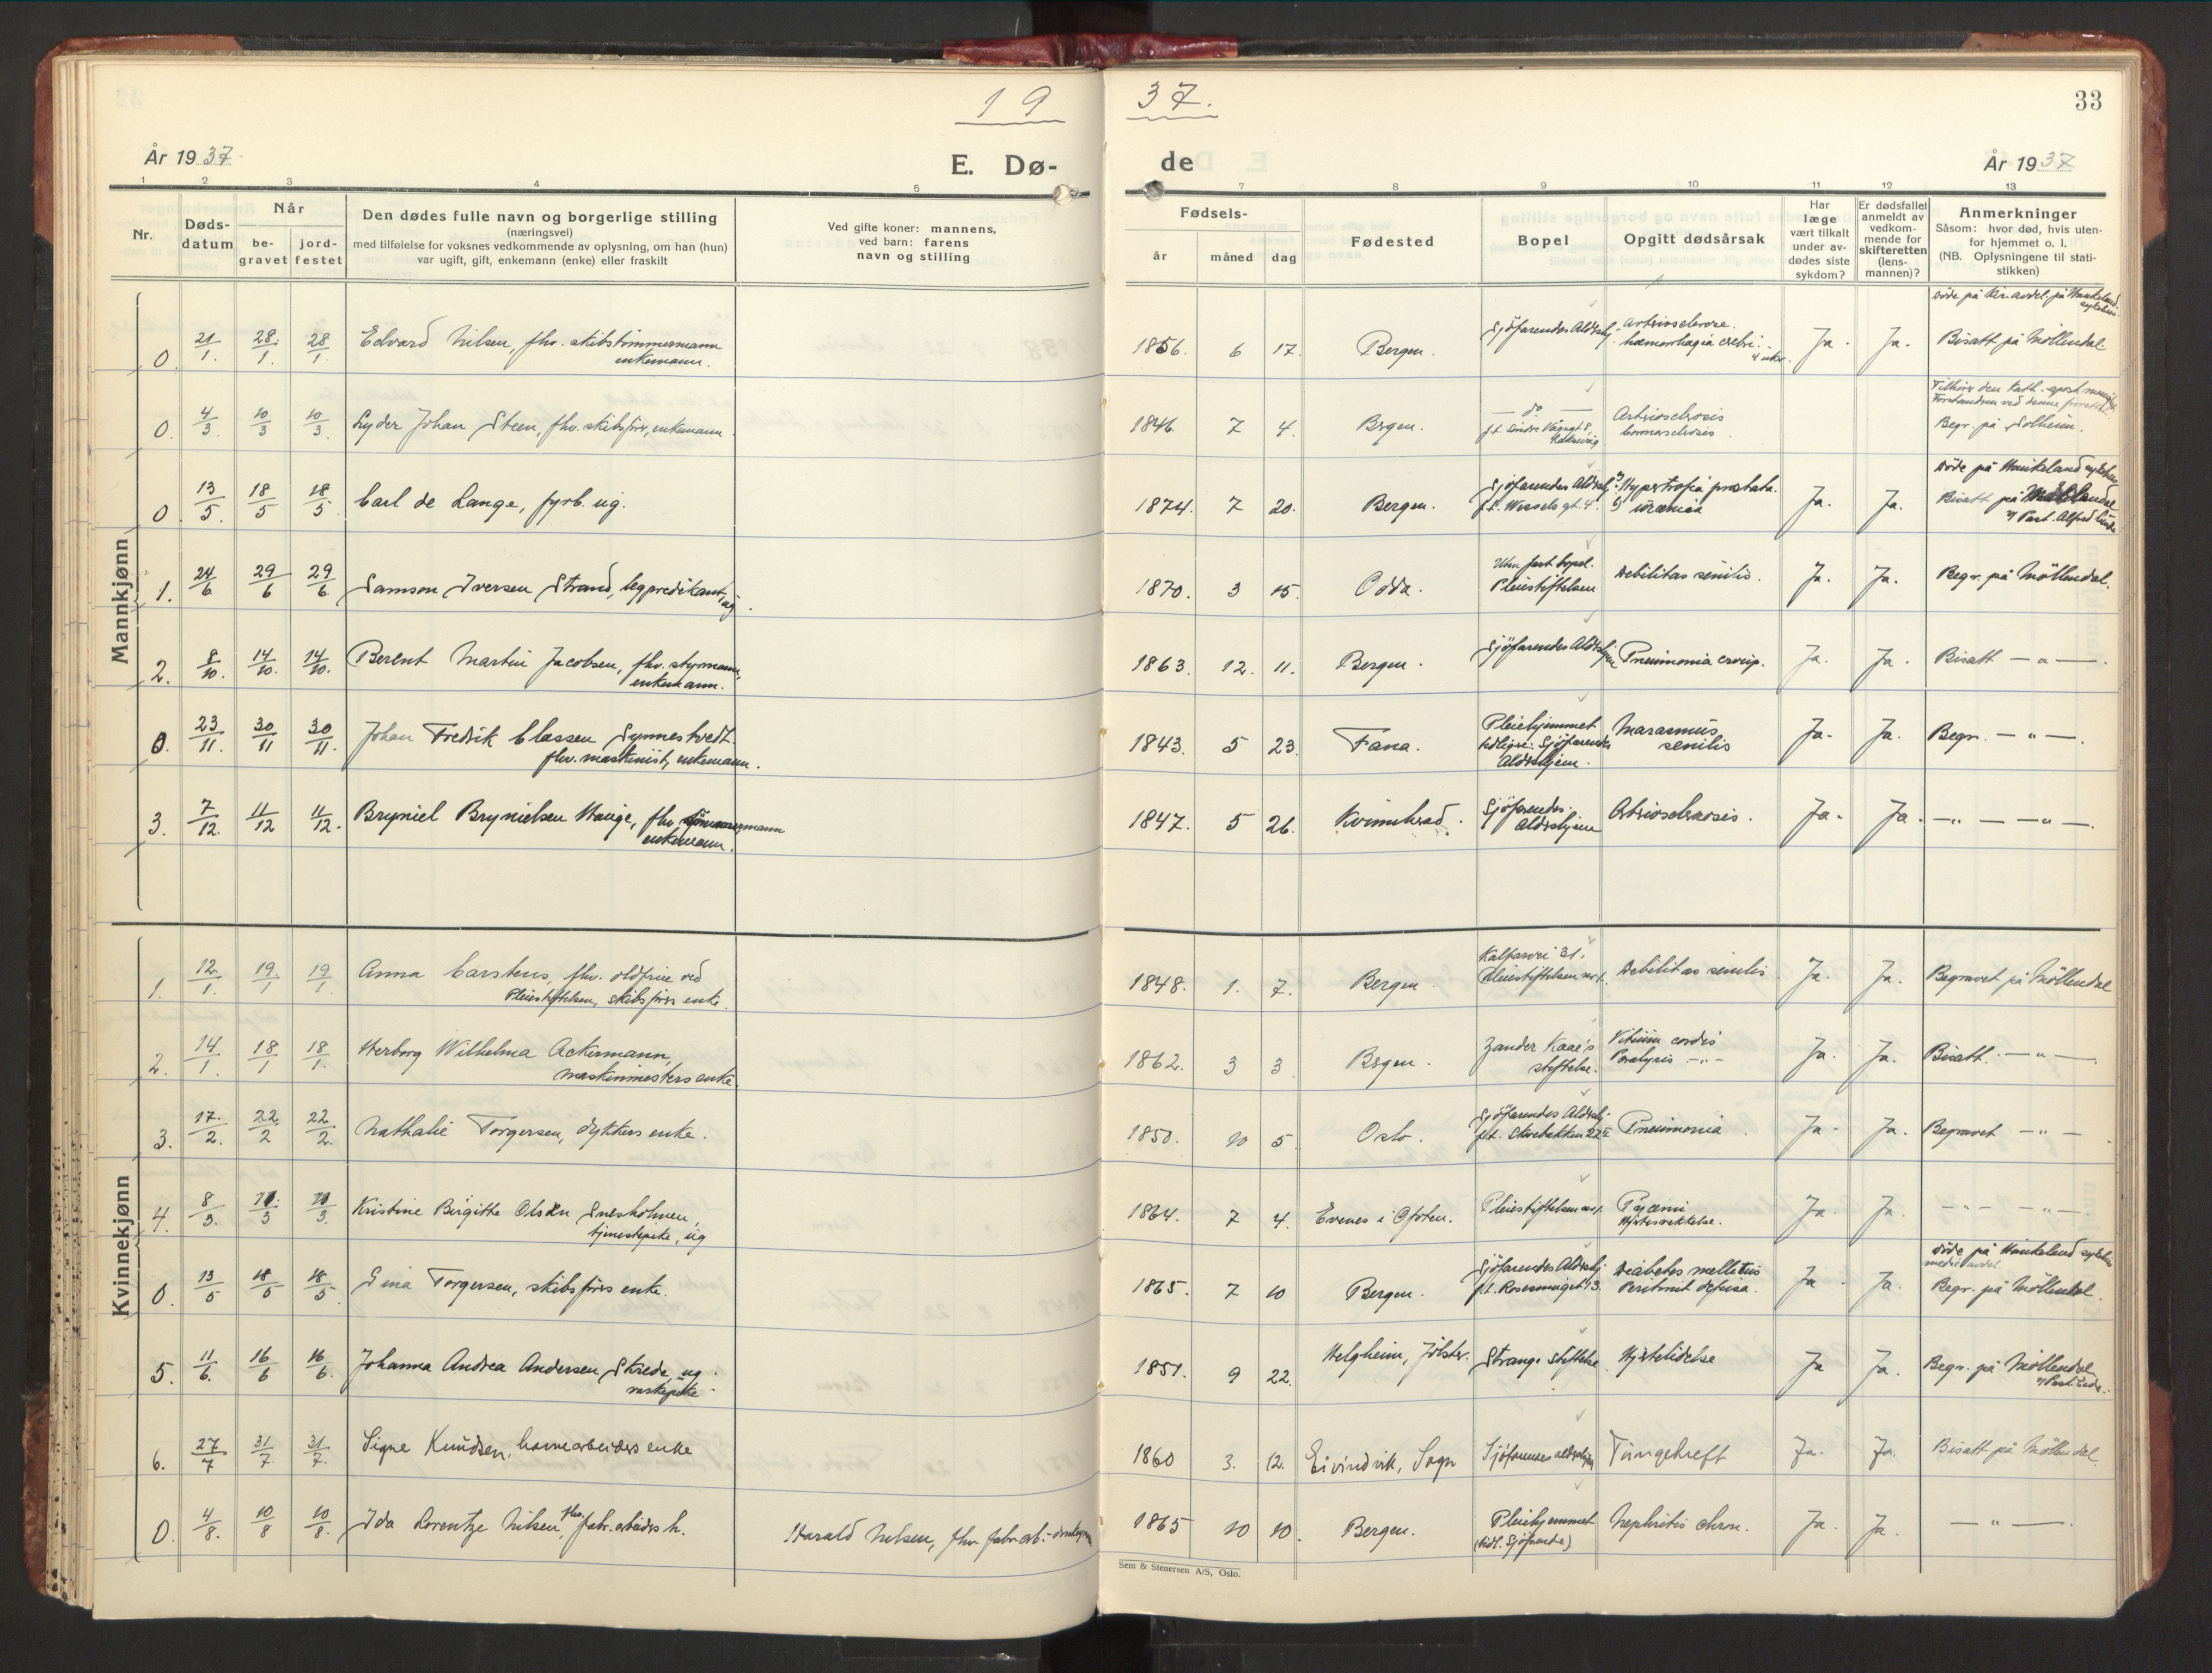 19 37.
33
År 1937
E. Dø-
de
År 1937
1 2 3 4 5 7 8 9 10 11 12 13
Nr.
Døds-
datum
Når
be-
gravet
jord-
festet
Den dødes fulle navn og borgerlige stilling
(næringsvei)
med tilføielse for voksnes vedkommende av oplysning, om han (hun)
var ugift, gift, enkemann (enke) eller fraskilt
Ved gifte koner: mannens,
ved barn: farens
navn og stilling
Fødsels-
år
måned
dag
Fødested
Bopel
Opgitt dødsårsak
Har
læge
vært tilkalt
under av-
dødes siste
sykdom?
Er dødsfallet
anmeldt av
vedkom-
mende for
skifteretten
(lens-
mannen)?
Anmerkninger
Såsom: hvor død, hvis uten-
for hjemmet o. l.
(NB. Oplysningene til stati-
stikken)
Mannkjønn
0. 21/1. 28/1 28/1 Edvard Nilsen, fhv. skibstømmermann
enkemann.
1856. 6 17. Bergen. Sjöfarendes Aldershj. Arteriosclerose.
hæmorrhagia cerebri.
4 uker. Ja. Ja. Döde på kir. avdel. på Haukeland
sykehus.
Bisatt på Möllendal.
0. 4/3. 10/3 10/3. Lyder Johan Steen, fhv. skibsfører, enkemann.
1846. 7 4. Bergen. — do —
Arteriosclerosis
Begr. på Solheim.
0. 13/5. 18/5 18/5 Carl de Lange, fyrb. ug.
1874. 7 20. Bergen. Sjöfarendes Aldershj.
f.t. Wesselsgt. 4. Hypertrofia prostata.
uræmia Ja. Ja. Döde på Haukeland sykehus
Bisatt på Möllendal
v/ Past. Alfred
1. 24/6 29/6 29/6. Samson Iversen Strand, legpredikant, ug.
1870. 3 15. Odda. Uten fast bopel.
Pleiestiftelsen Debilitas senilis. Ja. Ja. Begr. på Möllendal.
2. 8/10. 14/10. 14/10. Berent Martin Jacobsen, fhv. styrmann,
enkemann.
1863. 12. 11. Bergen. Sjöfarendes Aldershjem Pneumonia croup. Ja. Ja. Bisatt — " —.
0. 23/11. 30/11 30/11. Johan Fredrik Classen Synnestvedt.
fhv. maskinist, enkemann.
1843. 5 23. Fana. Pleiehjemmet
tidligere: Sjöfarendes
Aldershjem. Marasmus
senilis Ja. Ja. Begr. — " —.
3. 7/12. 11/12 11/12. Bryniel Brynielsen Hauge, fhv. tömmermann
enkemann.
1847. 5 26. Kvinnherad. Sjöfarendes
Aldershjem Arteriosclerosis. Ja. Ja. — " — — " —.
Kvinnekjønn
1. 12/1. 19/1 19/1 Anna Carstens, fhv. oldfrue ved
Pleiestiftelsen, skibsførers enke.
1848. 1. 7. Bergen. Kalfarvei 31.
Pleiestiftelsen nr. 1. Debilitas senilis Ja. Ja. Begravet på Möllendal
2. 14/1. 18/1 18/1. Herborg Wilhelma Ackermann,
maskinmesters enke.
1862. 3 3. Bergen. Zander Kaae's
stiftelse. Vitium cordis
Paralysis — " — Ja. Ja. Bisatt. — " —
3. 17/2. 22/2 22/2. Nathalie Torgersen, dykkers enke.
1850. 10 5. Oslo. Sjöfarendes Aldershj.
Pneumonia. Ja. Ja. Begravet — " —.
4. 8/3. 11/3 11/3. Kristine Birgitte Olsen Snesholmen,
tjenestepike, ug
1864. 7 4. Evenes i Ofoten. Pleiestiftelsen nr. 1. Pyæmi
Hjertesvekkelse. Ja. Ja. — " — — " —
0. 13/5 18/5 18/5 Gina Torgersen, skibsførers enke.
1865. 7 10 Bergen. Sjöfarendes Aldershj.
Diabetes mellitus
Peritonit diffusa. Ja. Ja. Döde på Haukeland sykehus
medic. avdel.
Begr. på Möllendal.
5. 11/6. 16/6 16/6. Johanna Andrea Andersen Skrede, ug.
vaskepike.
1851. 9 22. Helgheim, Jölster. Strange Stiftelse. Hjertelidelse Ja Ja. Begr. på Möllendal
6. 27/7 31/7 31/7. Signe Knudsen, havnearbeiders enke
1860 3. 12. Eivindvik, Sogn Sjöfarendes aldershjem Tungekreft Ja. Ja. Bisatt på Möllendal.
0. 4/8. 10/8 10/8. Ida Lorentze Nilsen, fhv. fabr. arbeiders h.
Harald Nilsen, fhv. fabr. arb.
1865 10 10. Bergen. Pleiehjemmet
(tidl. Sjöfarende) Nephritis chron. Ja. Ja. — " —.
Sem & Stenersen A/S, Oslo.